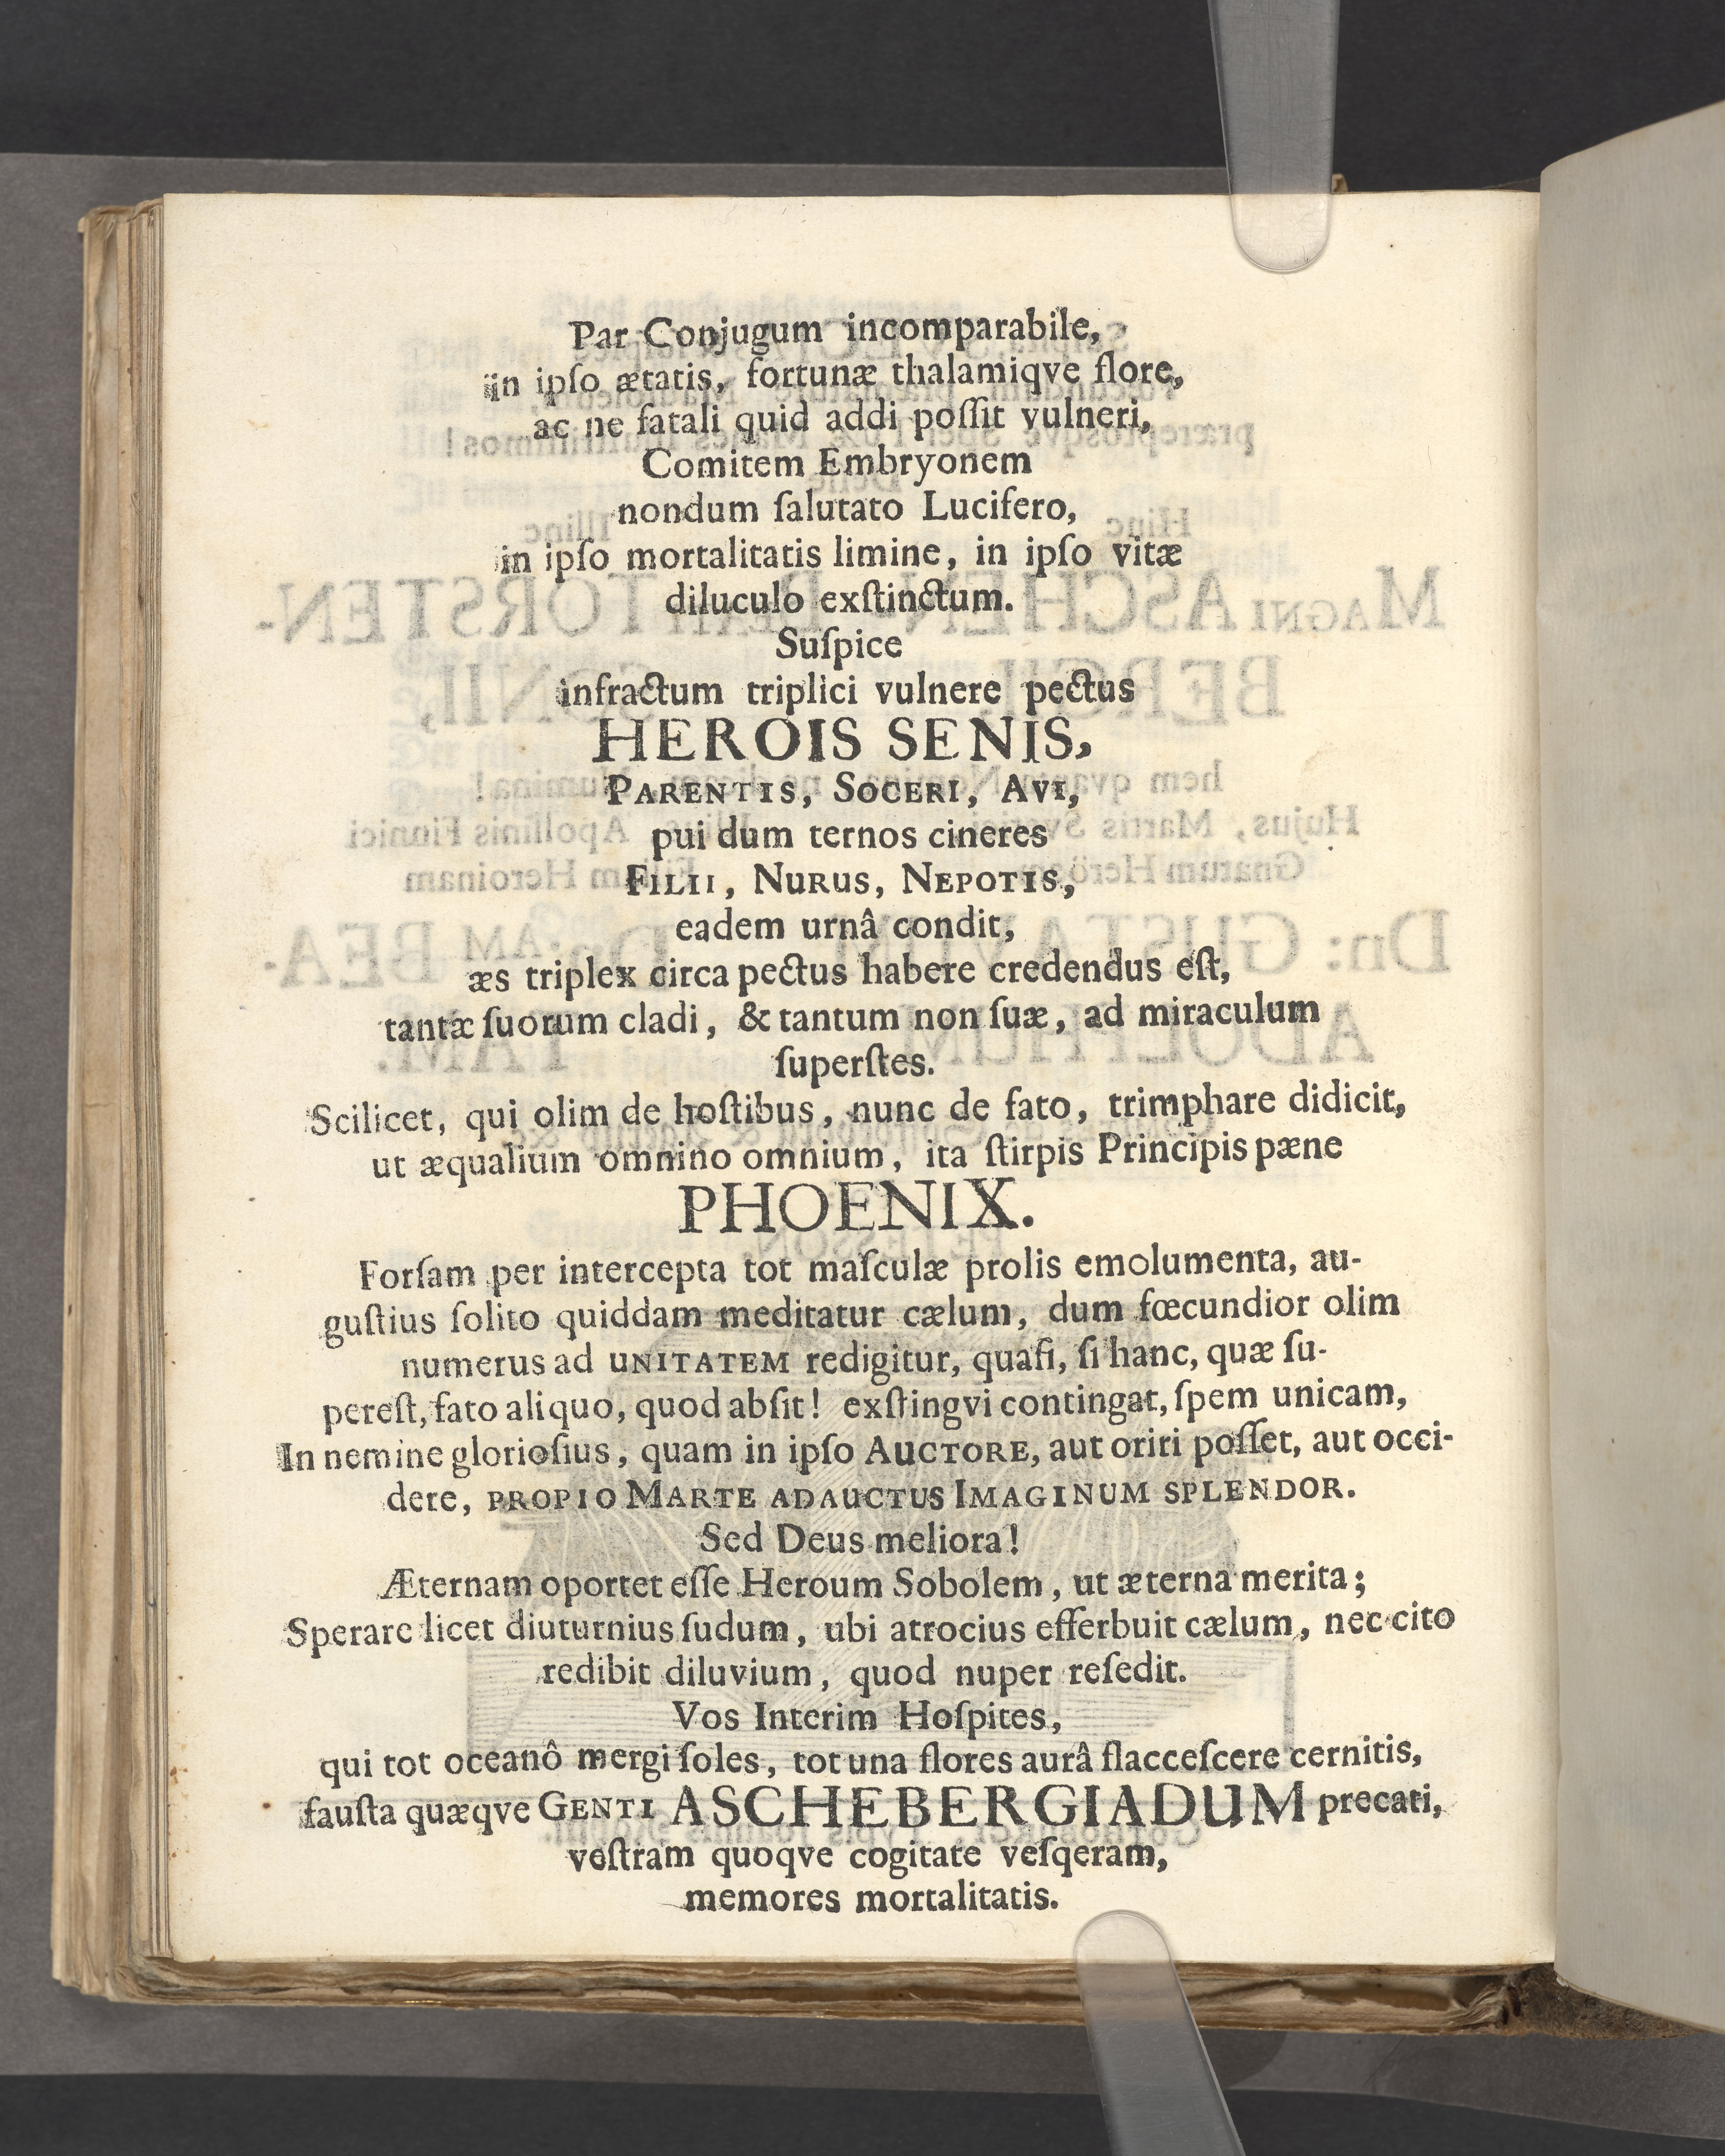 Par Conjugum incomparabile,
in ipſo ætatis, fortunæ thalamiqve flore,
ac ne fatali quid addi poſſit vulneri,
Comitem Embryonem
nondum ſalutato Lucifero,
in ipſo mortalitatis limine, in ipſo vitæ
diluculo exſtinctum.
Suſpice
infractum triplici vulnere pectus
HEROIS SENIS,
PARENTIS, SOCERI, AVI,
pui dum ternos cineres
FILII, NURUS, NEPOTIS,
eadem urnâ condit,
æs triplex circa pectus habere credendus eſt,
tantæ ſuorum cladi, & tantum non ſuæ, ad miraculum
ſuperſtes.
Scilicet, qui olim de hoſtibus, nunc de fato, trimphare didicit,
ut æqualium omnino omnium, ita ſtirpis Principis pæne
PHOENIX.
Forſam per intercepta tot maſculæ prolis emolumenta, au-
guſtius ſolito quiddam meditatur cælum, dum fœcundior olim
numerus ad UNITATEM redigitur, quaſi, ſi hanc, quæ ſu-
pereſt, fato aliquo, quod abſit! exſtingvi contingat, ſpem unicam,
In nemine glorioſius, quam in ipſo AUCTORE, aut oriri poſſet, aut occi-
dere, PROPIO MARTE ADAUCTUS IMAGINUM SPLENDOR.
Sed Deus meliora!
Æternam oportet eſſe Heroum Sobolem, ut æterna merita;
Sperare licet diuturnius ſudum, ubi atrocius efferbuit cælum, nec cito
redibit diluvium, quod nuper reſedit.
Vos Interim Hoſpites,
qui tot oceanô mergi ſoles, tot una flores aurâ flacceſcere cernitis,
fauſta quæqve GENTI ASCHEBERGIADUM precati,
veſtram quoqve cogitate veſqeram,
memores mortalitatis.